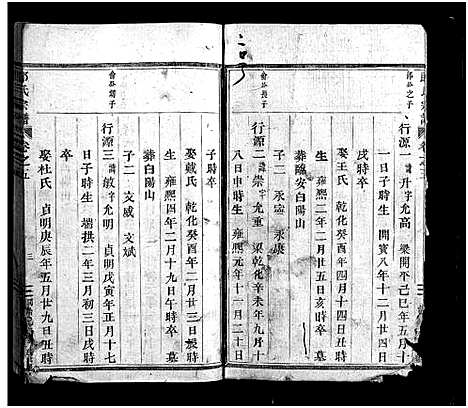 行源一 諱升 字允高 梁開平己巳年五月十
一日子時生 開寶八年十二月廿八日
戌時卒
娶王氏 乾化癸酉年四月十四日子時
生 雍熙二年二月廿五日亥時卒
葬臨安白陽山
子二 永寧 永康
俞公長子
行源二 諱崇 字允重 梁乾化辛未年九月十
八日申時生 雍熙元年十一月二十日
子時卒
娶戴氏 乾化癸酉年二月廿三日辰時
生 雍熙四年二月十九日午時卒 墓
葬白陽山
子二 文威 文斌
行源三 諱敏 字允明 貞明戊寅年正月十七
日子時生 端拱二年三月初三日戌時
卒
娶杜氏 貞明庚辰年五月廿九日丑時
氏宗譜 卷之五
三